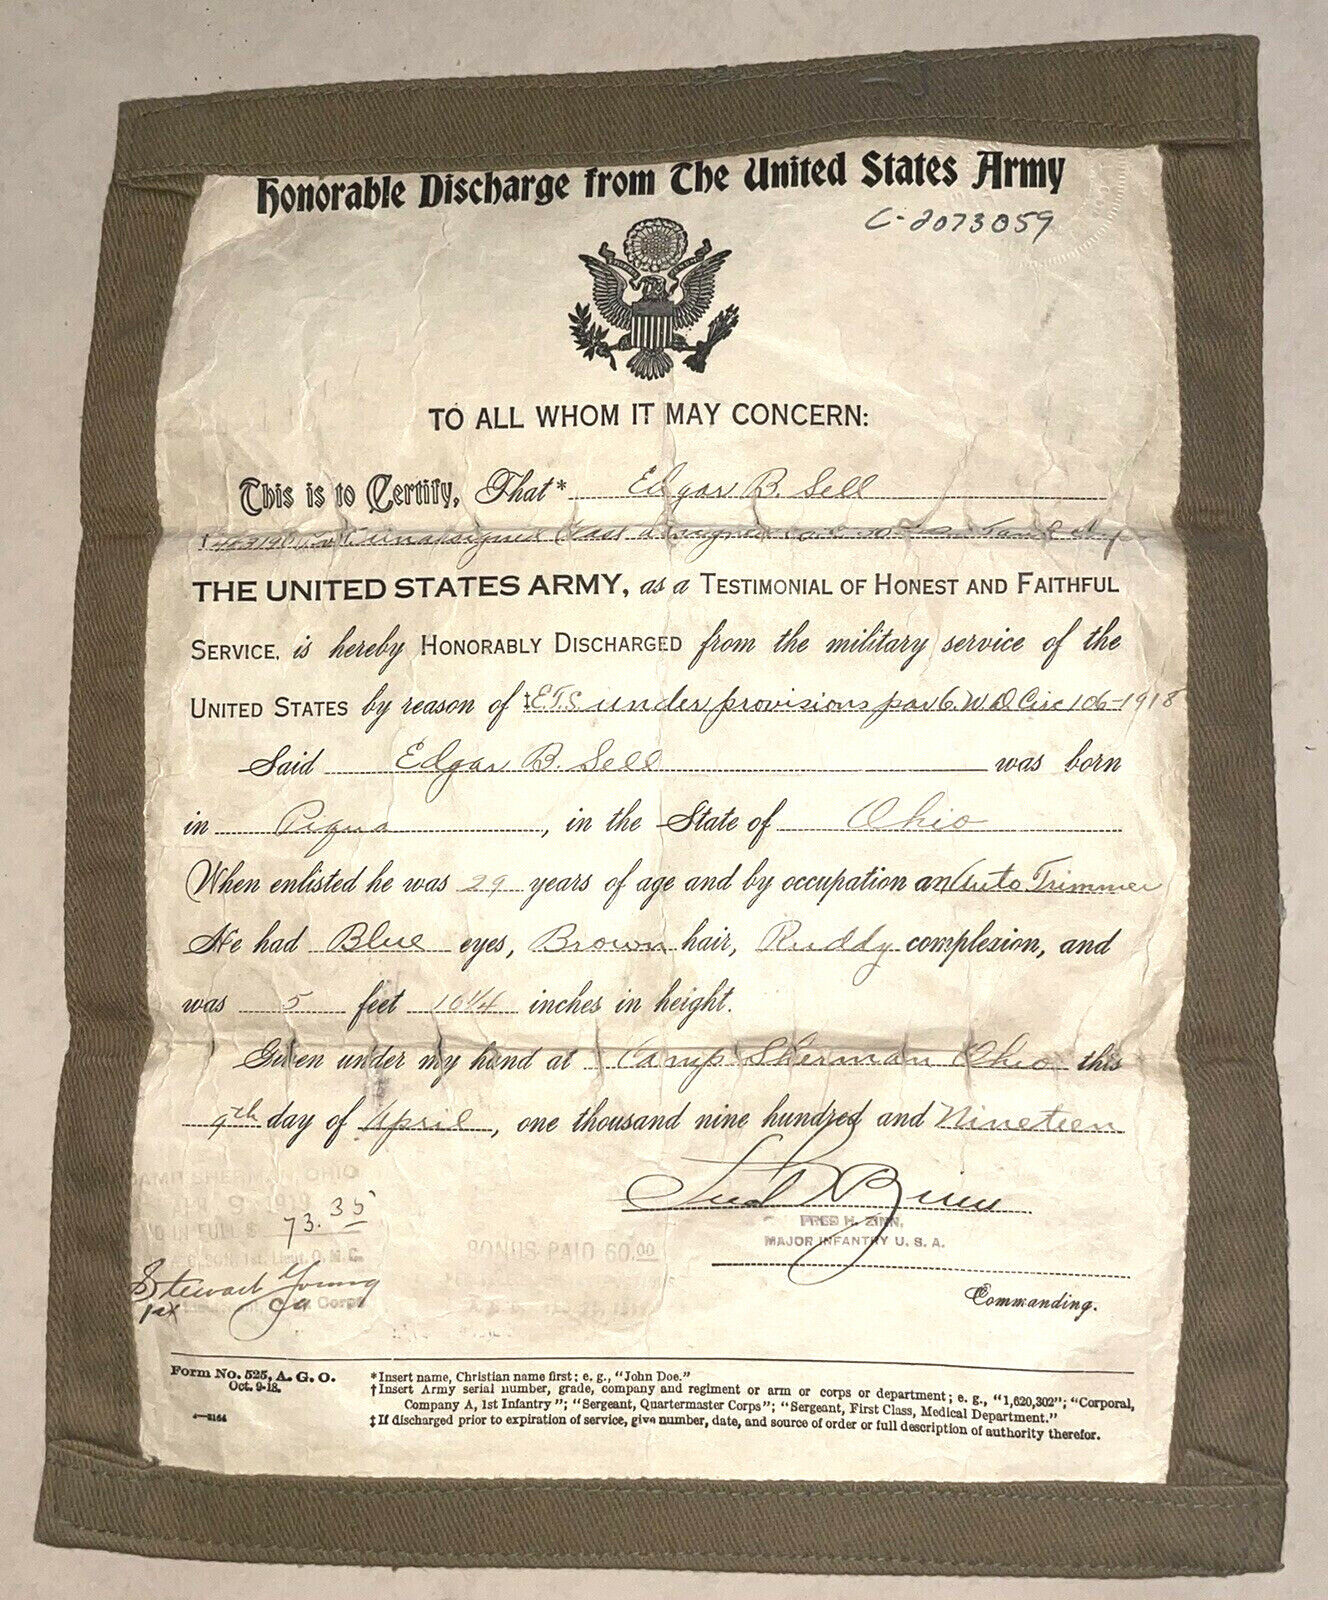 Honorable Discharge from The United States Army
C-2073059
TO ALL WHOM IT MAY CONCERN:
This is to Certify, That* Edgar B. Sell
† unassigned
THE UNITED STATES ARMY, as a TESTIMONIAL OF HONEST AND FAITHFUL
SERVICE, is hereby HONORABLY DISCHARGED from the military service of the
UNITED STATES by reason of ‡E.T.S. under provisions par 6. W.D. Circ 106-1918
Said Edgar B. Sell was born
in Piqua, in the State of Ohio
When enlisted he was 29 years of age and by occupation an Auto Trimmer
He had Blue eyes, Brown hair, Ruddy complexion, and
was 5 feet 10 1/4 inches in height.
Given under my hand at Camp Sherman Ohio this
9th day of April, one thousand nine hundred and Nineteen
CAMP SHERMAN, OHIO
1919
FRED H. ZINN,
IN FULL $ 73.35
MAJOR INFANTRY U. S. A.
BONUS PAID 60.00
Stewart Young
Commanding.
Form No. 525, A. G. O.
Oct. 9-18.
*Insert name, Christian name first; e. g., "John Doe."
†Insert Army serial number, grade, company and regiment or arm or corps or department; e. g., "1,620,302"; "Corporal,
Company A, 1st Infantry"; "Sergeant, Quartermaster Corps"; "Sergeant, First Class, Medical Department."
‡If discharged prior to expiration of service, give number, date, and source of order or full description of authority therefor.